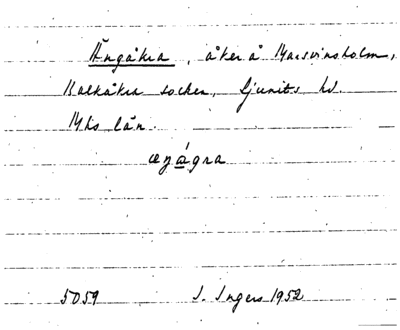 Ängåkra, åker å Marsvinsholm,
Balkåkra socken, Ljunits hd.
Mhs län.
æŋågra
5059 I. Ingers 1952